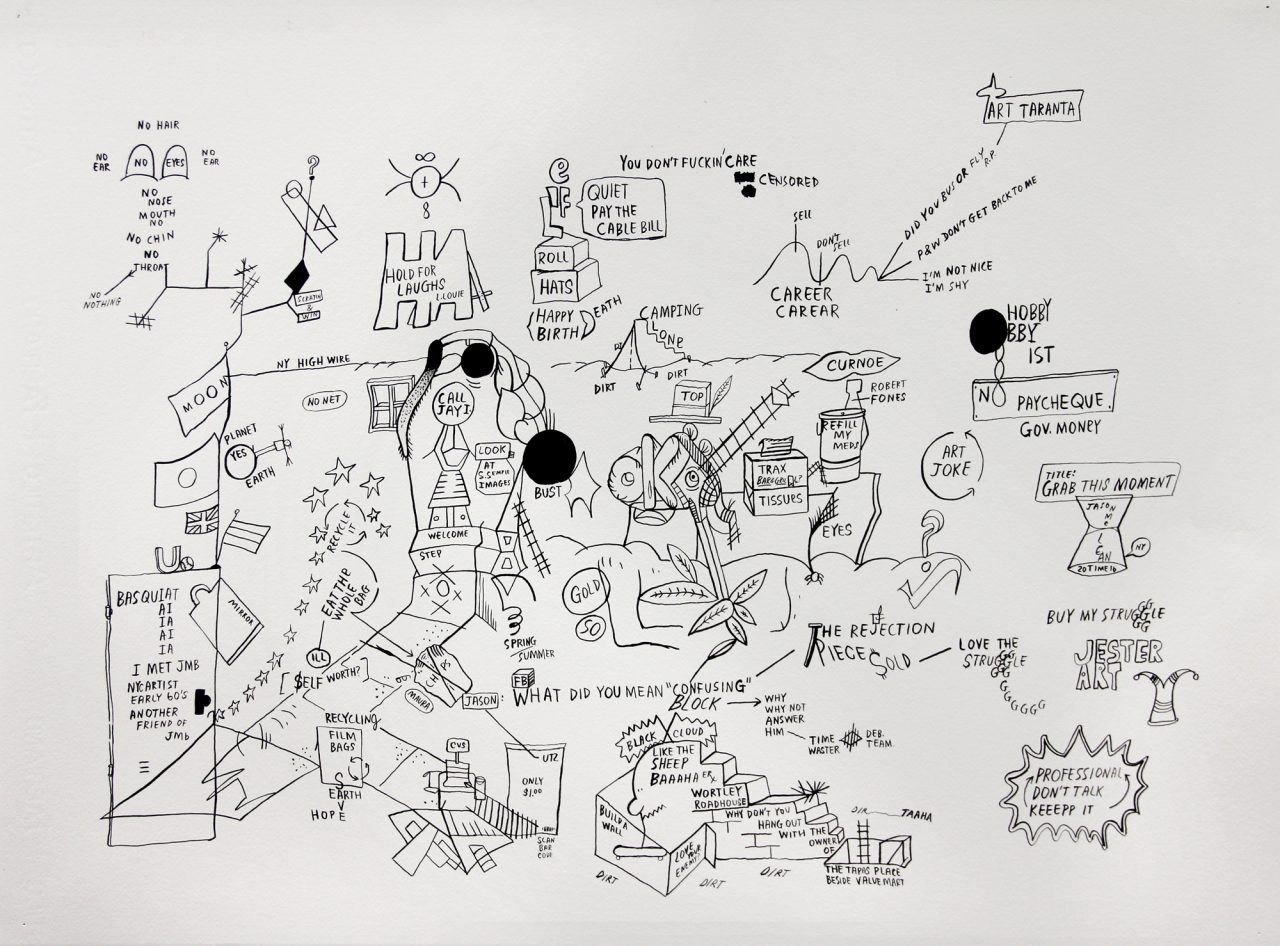 ART TARANTA
NO HAIR
NO
EAR
NO
EYES
NO
EAR
NO
NOSE
MOUTH
NO
NO CHIN
NO
THROAT
NO
NOTHING
?
SCRATCH
&
WIN
HOLD FOR
LAUGHS
L. LOUIE
ELF
QUIET
PAY THE
CABLE BILL
ROLL
HATS
(HAPPY
BIRTH)
DEATH
YOU DON'T FUCKIN' CARE
CENSORED
SELL
DON'T
SELL
CAREER
CAREAR
DID YOU BUS OR FLY
R.P.
P&W DON'T GET BACK TO ME
I'M NOT NICE
I'M SHY
CAMPING
LONE
DIRT
DIRT
HOBBY
BBY
IST
NO PAYCHEQUE
GOV. MONEY
NY HIGH WIRE
NO NET
MOON
PLANET
YES
EARTH
CALL
JAY I.
LOOK
AT
S. SEMPLE
IMAGES
BUST
WELCOME
STEP
TOP
CURNOE
ROBERT
FONES
REFILL
MY
MEDS
TRAX
TISSUES
EYES
ART
JOKE
TITLE:
GRAB THIS MOMENT
JASON
McLEAN
NY
20 TIME 16
RECYCLE
IT
EAT THE
WHOLE
BAG
ILL
$ELF WORTH?
U
MIRROR
BASQUIAT
AI
IA
AI
IA
I MET JMB
NYC ARTIST
EARLY 60'S
ANOTHER
FRIEND OF
JMb
GOLD
SO
SPRING
SUMMER
CHIPS
MAURA
FB
JASON:
WHAT DID YOU MEAN "CONFUSING"
BLOCK
WHY
WHY NOT
ANSWER
HIM
TIME
WASTER
DEB.
TEAM.
THE REJECTION
PIECE $OLD
LOVE THE
STRUGGLE
GGGGG
BUY MY STRUGGLE
JESTER
ART
PROFESSIONAL
DON'T TALK
KEEEPP IT
RECYCLING
FILM
BAGS
SAVE
EARTH
HOPE
CVS
UTZ
ONLY
$1.00
SCAN
BAR
CODE
BLACK
CLOUD
LIKE THE
SHEEP
BAAAHA
WORTLEY
ROADHOUSE
WHY DON'T YOU
HANG OUT
WITH THE
OWNER
OF
THE TAPAS PLACE
BESIDE VALUMART
BUILD A
WALL
LOVE YOUR
ENEMY!
DIRT
DIRT
DIRT
JAAHA